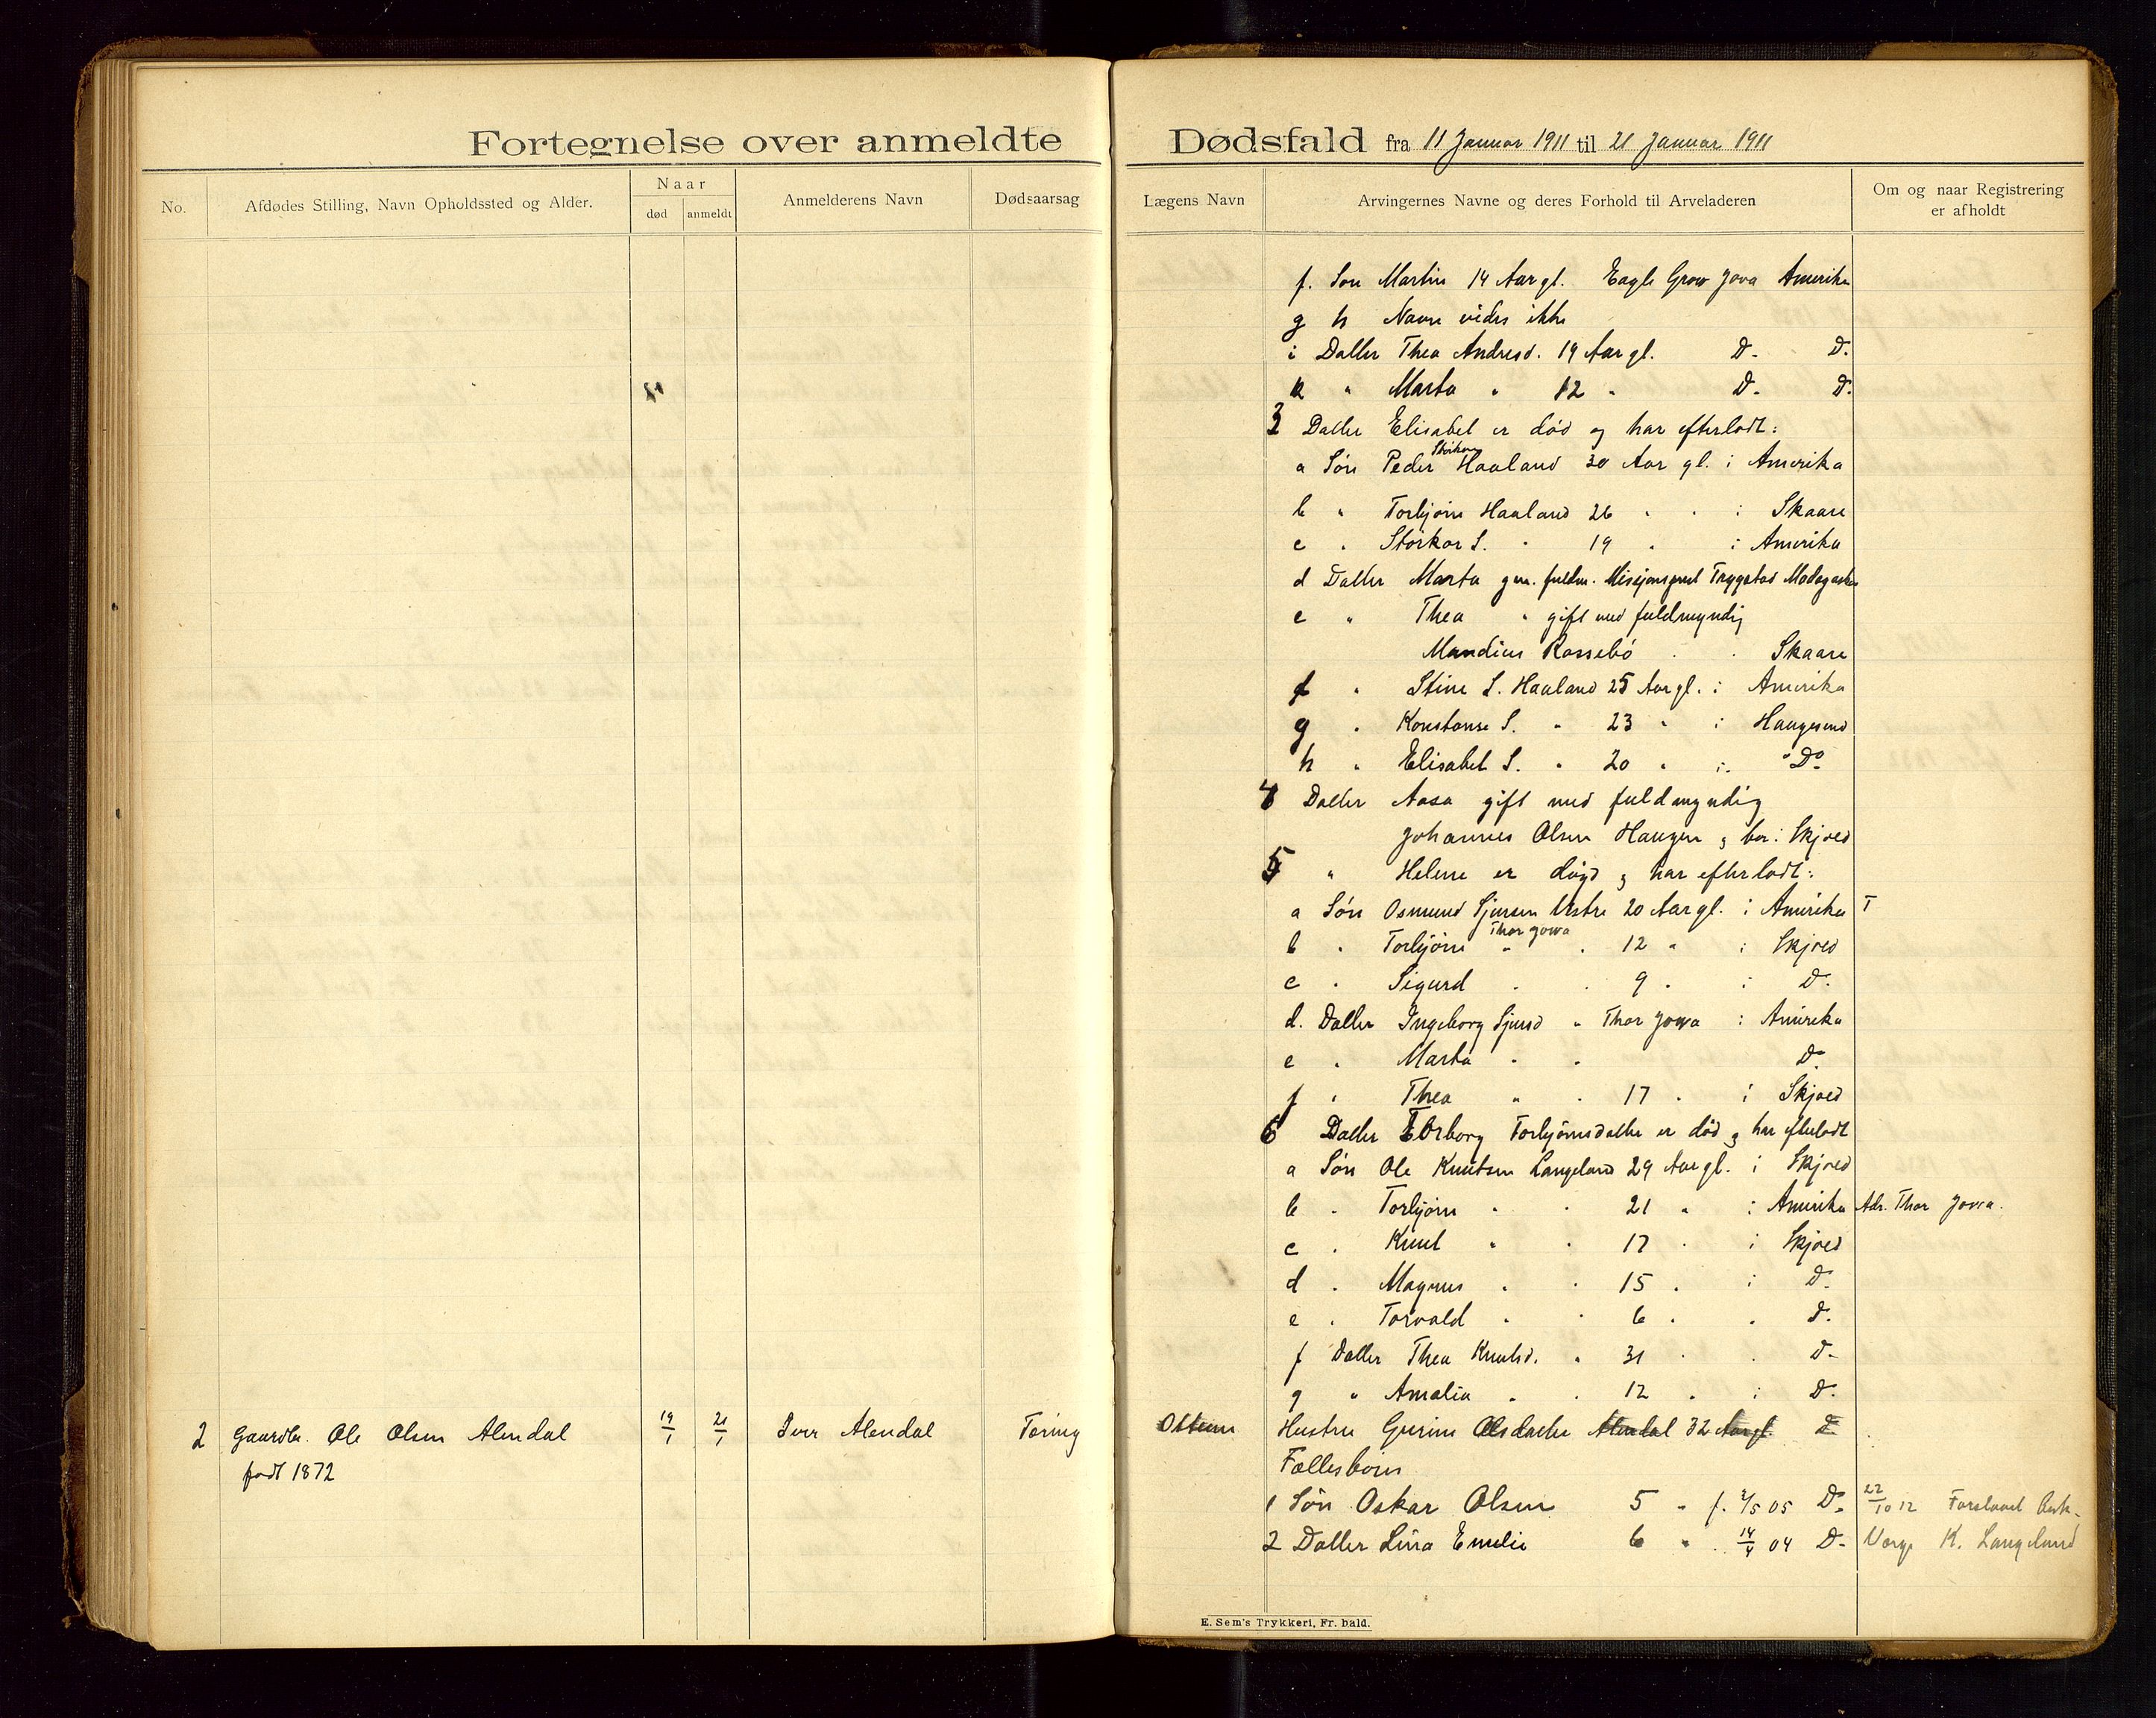 Fortegnelse over anmeldte
Dødsfald fra 11 Januar 1911 til 21 Januar 1911
No.
Afdødes Stilling, Navn Opholdssted og Alder.
Naar
død
anmeldt
Anmelderens Navn
Dødsaarsag
Lægens Navn
Arvingernes Navne og deres Forhold til Arveladeren
Om og naar Registrering
er afholdt
f. Søn Martin 14 Aar gl. Eagle Grow Jova Amerika
g h Navne vides ikke
i Datter Thea Andresd. 19 Aar gl. D. D.
k " Marta " 12 " D. D.
3 Datter Elisabet er død og har efterladt:
Storkors
a Søn Peder Haaland 30 Aar gl. i Amerika
b " Torbjørn Haaland 26 " " i Skaare
c " Storkor S. " 19 " i Amerika
d Datter Marta gm. fuldm. Misjonsprest Trygstad Madagaskar
e " Thea " gift med fuldmyndig
Mandius Rossebö " " Skaare
f " Stine S. Haaland 25 Aar gl. i Amerika
g " Konstanse S. " 23 " i Haugesund
h " Elisabet S. " 20 " i Do
4 Datter Aasa gift med fuldmyndig
Johannes Olsen Haugen og bor i Skjold
5 " Helene er død og har efterladt:
a Søn Osmund Sjursen Østre 20 Aar gl. i Amerika T
Thor Jowa
b " Torbjörn " " 12 " i Skjold
c " Sigurd " " 9 " i D.
d. Datter Ingeborg Sjursd " Thor Jowa i Amerika
e " Marta " " D.
f " Thea " " 17 " i Skjold
6 Datter Torborg Torbjörnsdatter er död og har efterladt
a Søn Ole Knutsen Langeland 29 Aar gl. i Skjold
b " Torbjørn " " 21 " i Amerika Adr. Thor Jowa.
c " Knut " " 17 " i Skjold
d " Magnus " " 15 " i D.
e " Torvald " " 6 " " D.
f Datter Thea Knutsd. " 31 " " D.
g " Amalia " " 12 " i D.
2 Gaardbr. Ole Olsen Alendal 19/1 21/1 Iver Alendal Tæring Ottesen Hustru Gurine Olsdatter Alendal 32 Aar gl. D
født 1872
Fællesbørn
1 Sön Oskar Olsen 5 " f. 2/5 05 D. 22/10 12 Forslaaet Besk.
2 Datter Lina Emelie 6 " " 14/4 04 D. Værge K. Langeland
E. Sem's Trykkeri, Fr. hald.